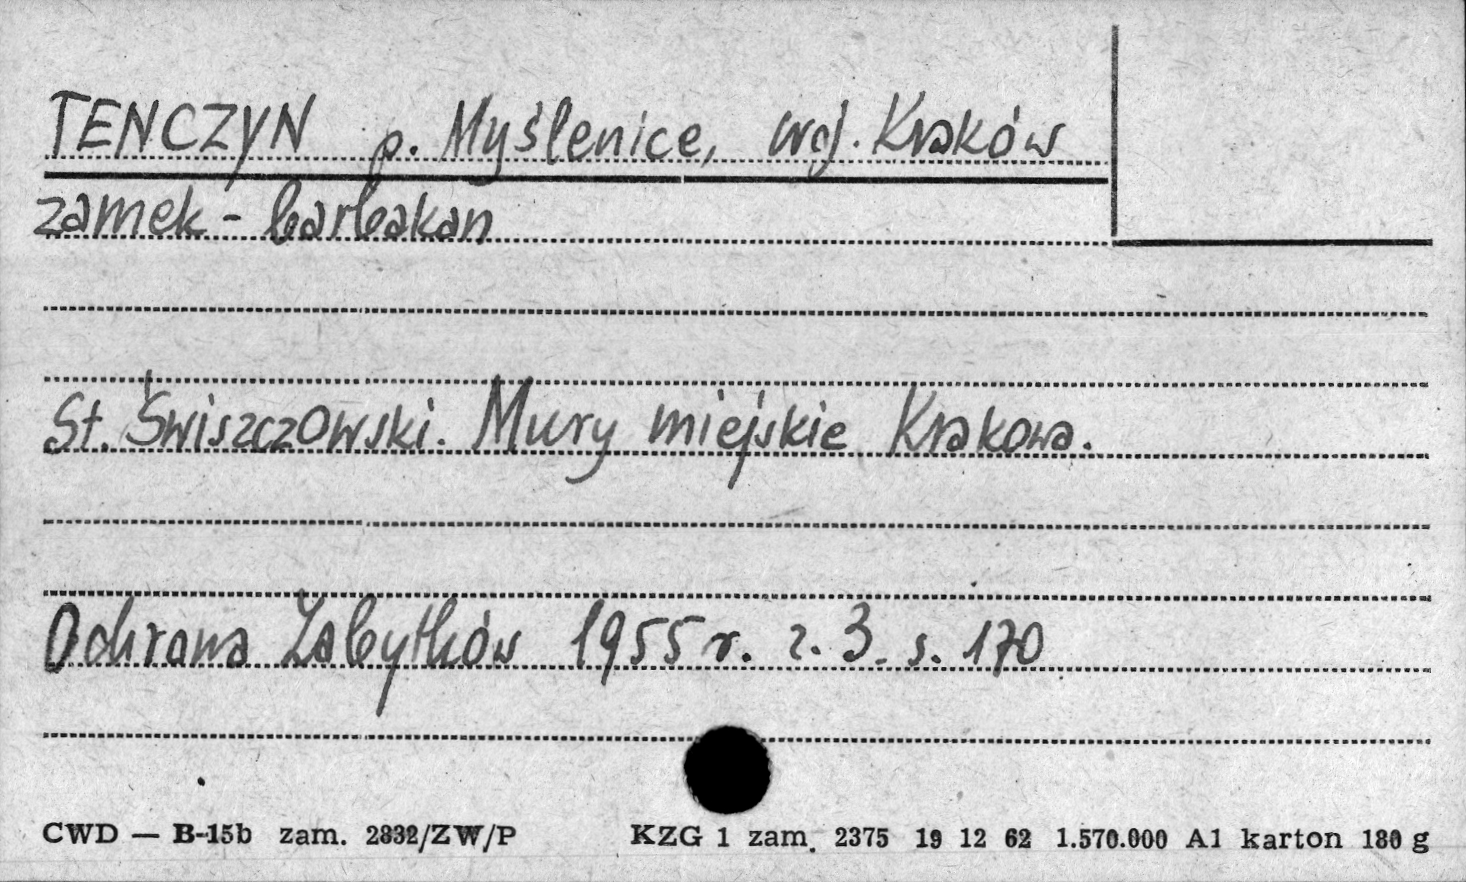 TENCZYN p. Myślenice, woj. Kraków
zamek - barbakan
St. Świszczowski. Mury miejskie Krakowa.
Ochrona Zabytków 1955 r. z. 3. s. 170
CWD — B-15b zam. 2832/ZW/P KZG 1 zam. 2375 19 12 62 1.570.000 A1 karton 180 g